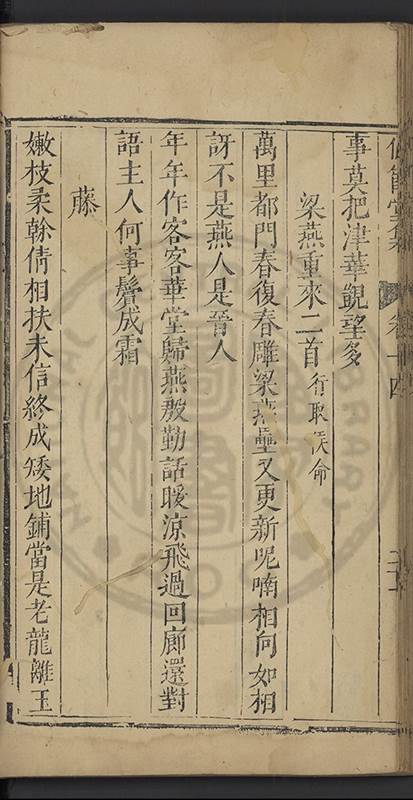 堂集
卷十四
事莫把津華覬望多
梁燕重來二首行取候命
萬里都門春復春雕梁燕壘又更新呢喃相向如相
訝不是燕人是晉人
年年作客客華堂歸燕殷勤話暖涼飛過回廊還對
語主人何事鬢成霜
藤
嫩枝柔幹倩相扶未信終成矮地鋪當是老龍離玉